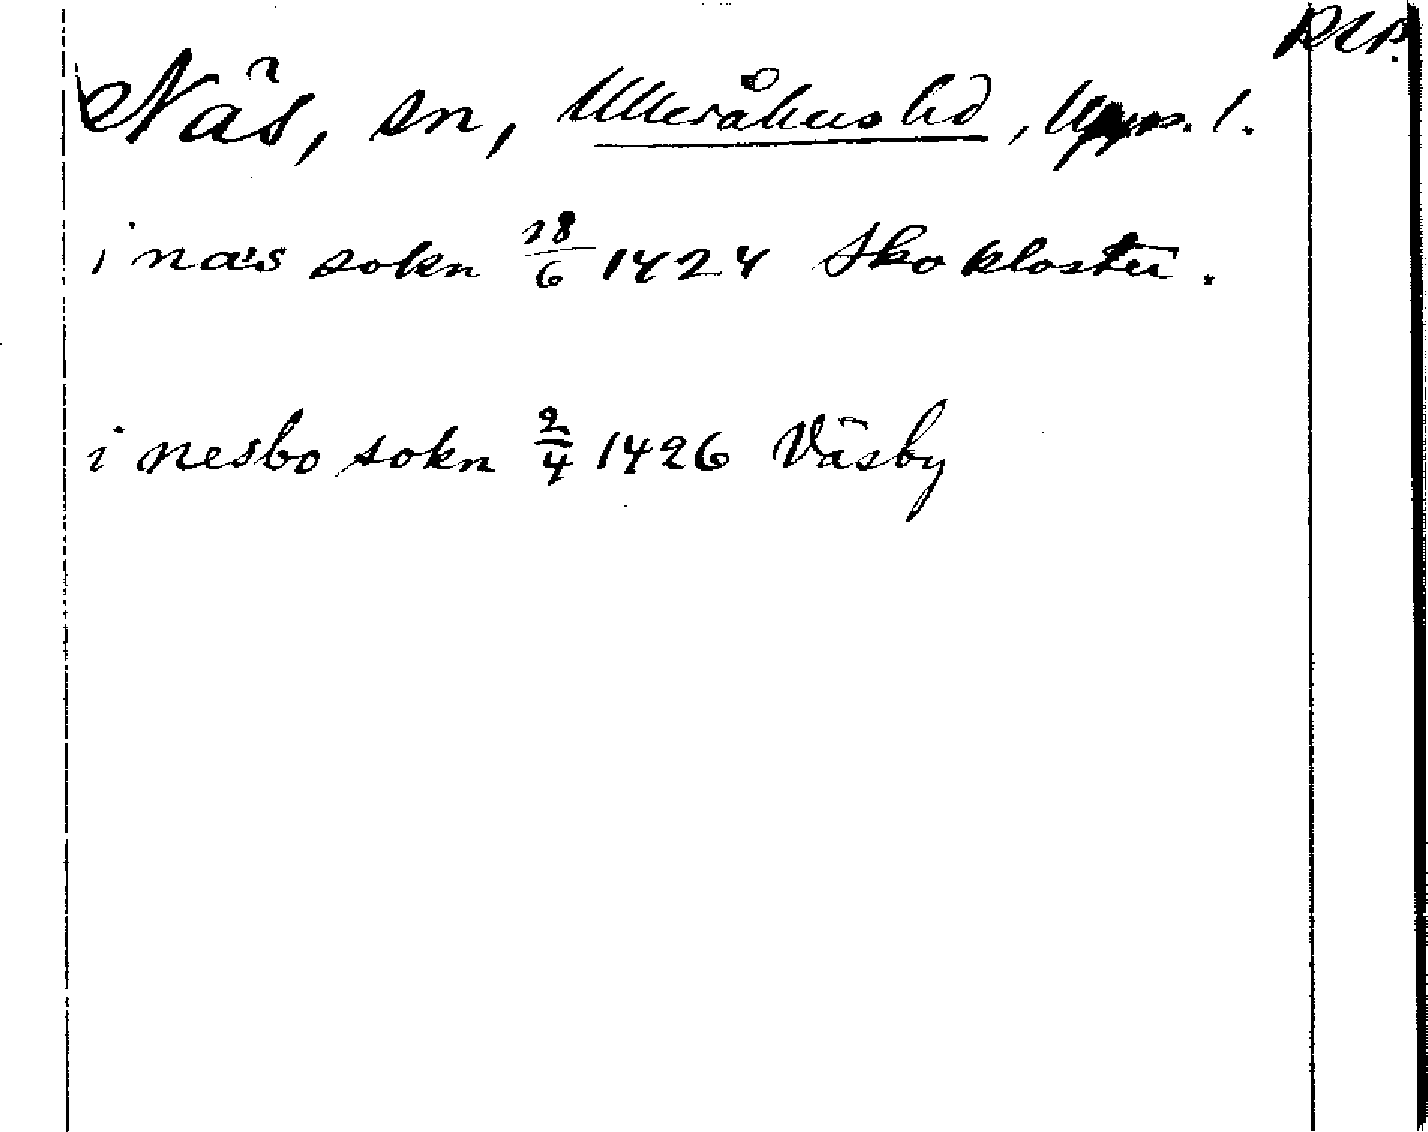 RAP.
Näs, sn, Ulleråkers hd, Upps. l.
i næs sokn 18/6 1424 Skokloster.
i nesbo sokn 2/4 1426 Väsby